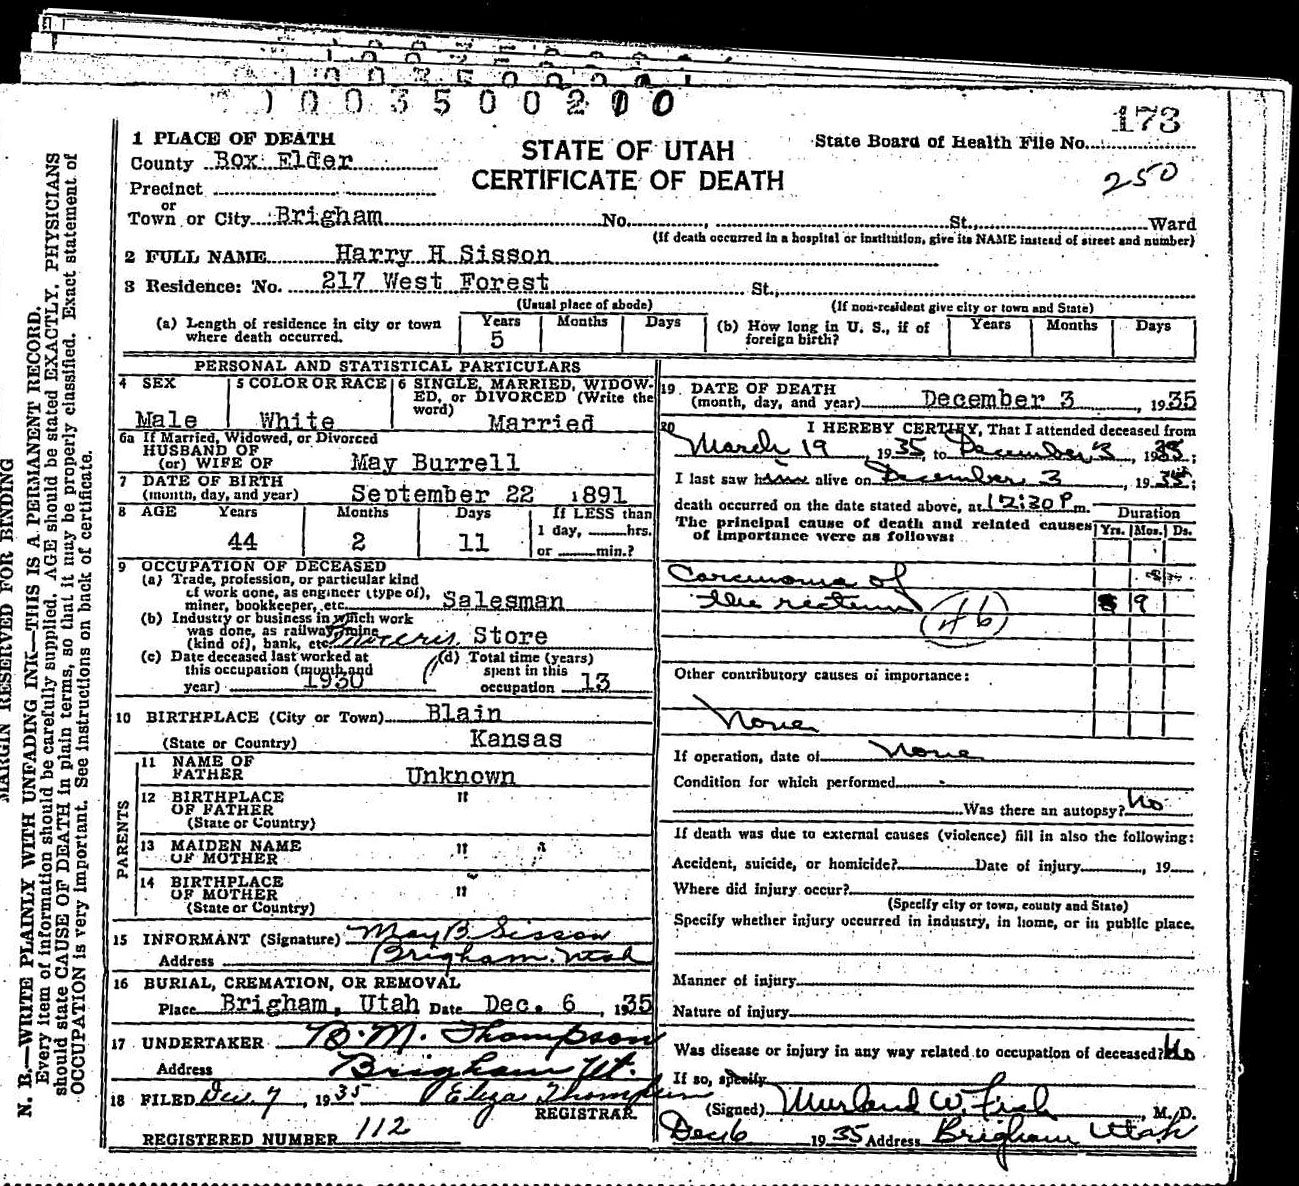 1 0 0 3 5 0 0 2 0 0
173
1 PLACE OF DEATH
County Box Elder
Precinct
or
Town or City Brigham No. St., Ward
STATE OF UTAH
CERTIFICATE OF DEATH
State Board of Health File No.
250
(If death occurred in a hospital or institution, give its NAME instead of street and number)
2 FULL NAME Harry H Sisson
3 Residence: No. 217 West Forest St.,
(Usual place of abode) (If non-resident give city or town and State)
(a) Length of residence in city or town where death occurred. Years 5 Months Days
(b) How long in U. S., if of foreign birth? Years Months Days
PERSONAL AND STATISTICAL PARTICULARS
4 SEX Male
5 COLOR OR RACE White
6 SINGLE, MARRIED, WIDOWED, or DIVORCED (Write the word) Married
6a If Married, Widowed, or Divorced
HUSBAND OF
(or) WIFE OF May Burrell
7 DATE OF BIRTH
(month, day, and year) September 22 1891
8 AGE Years 44 Months 2 Days 11
If LESS than
1 day, hrs.
or min.?
9 OCCUPATION OF DECEASED
(a) Trade, profession, or particular kind
of work done, as engineer (type of),
miner, bookkeeper, etc. Salesman
(b) Industry or business in which work
was done, as railway, mine
(kind of), bank, etc. Grocery Store
(c) Date deceased last worked at
this occupation (month and
year) 1930
(d) Total time (years)
spent in this
occupation 13
10 BIRTHPLACE (City or Town) Blain
(State or Country) Kansas
PARENTS
11 NAME OF
FATHER Unknown
12 BIRTHPLACE
OF FATHER "
(State or Country)
13 MAIDEN NAME
OF MOTHER "
14 BIRTHPLACE
OF MOTHER "
(State or Country)
15 INFORMANT (Signature) May B Sisson
Address Brigham, Utah
16 BURIAL, CREMATION, OR REMOVAL
Place Brigham, Utah Date Dec. 6, 1935
17 UNDERTAKER B. M. Thompson
Address Brigham Ut.
18 FILED Dec. 7, 1935 Eliza Thompson
REGISTRAR
REGISTERED NUMBER 112
19 DATE OF DEATH
(month, day, and year) December 3, 1935
20 I HEREBY CERTIFY, That I attended deceased from
March 19, 1935, to December 3, 1935;
I last saw him alive on December 3, 1935;
death occurred on the date stated above, at 12:30 P.m.
The principal cause of death and related causes
of importance were as follows:
Duration
Yrs. Mos. Ds.
Carcinoma of
the rectum 9
46
Other contributory causes of importance:
None
If operation, date of None
Condition for which performed
Was there an autopsy? No
If death was due to external causes (violence) fill in also the following:
Accident, suicide, or homicide? Date of injury , 19
Where did injury occur?
(Specify city or town, county and State)
Specify whether injury occurred in industry, in home, or in public place.
Manner of injury
Nature of injury
Was disease or injury in any way related to occupation of deceased? No
If so, specify
(Signed) Murland W. Fish, M. D.
Dec 6 1935 Address Brigham Utah
MARGIN RESERVED FOR BINDING
N. B.—WRITE PLAINLY WITH UNFADING INK—THIS IS A PERMANENT RECORD.
Every item of information should be carefully supplied. AGE should be stated EXACTLY. PHYSICIANS
should state CAUSE OF DEATH in plain terms, so that it may be properly classified. Exact statement of
OCCUPATION is very important. See instructions on back of certificate.